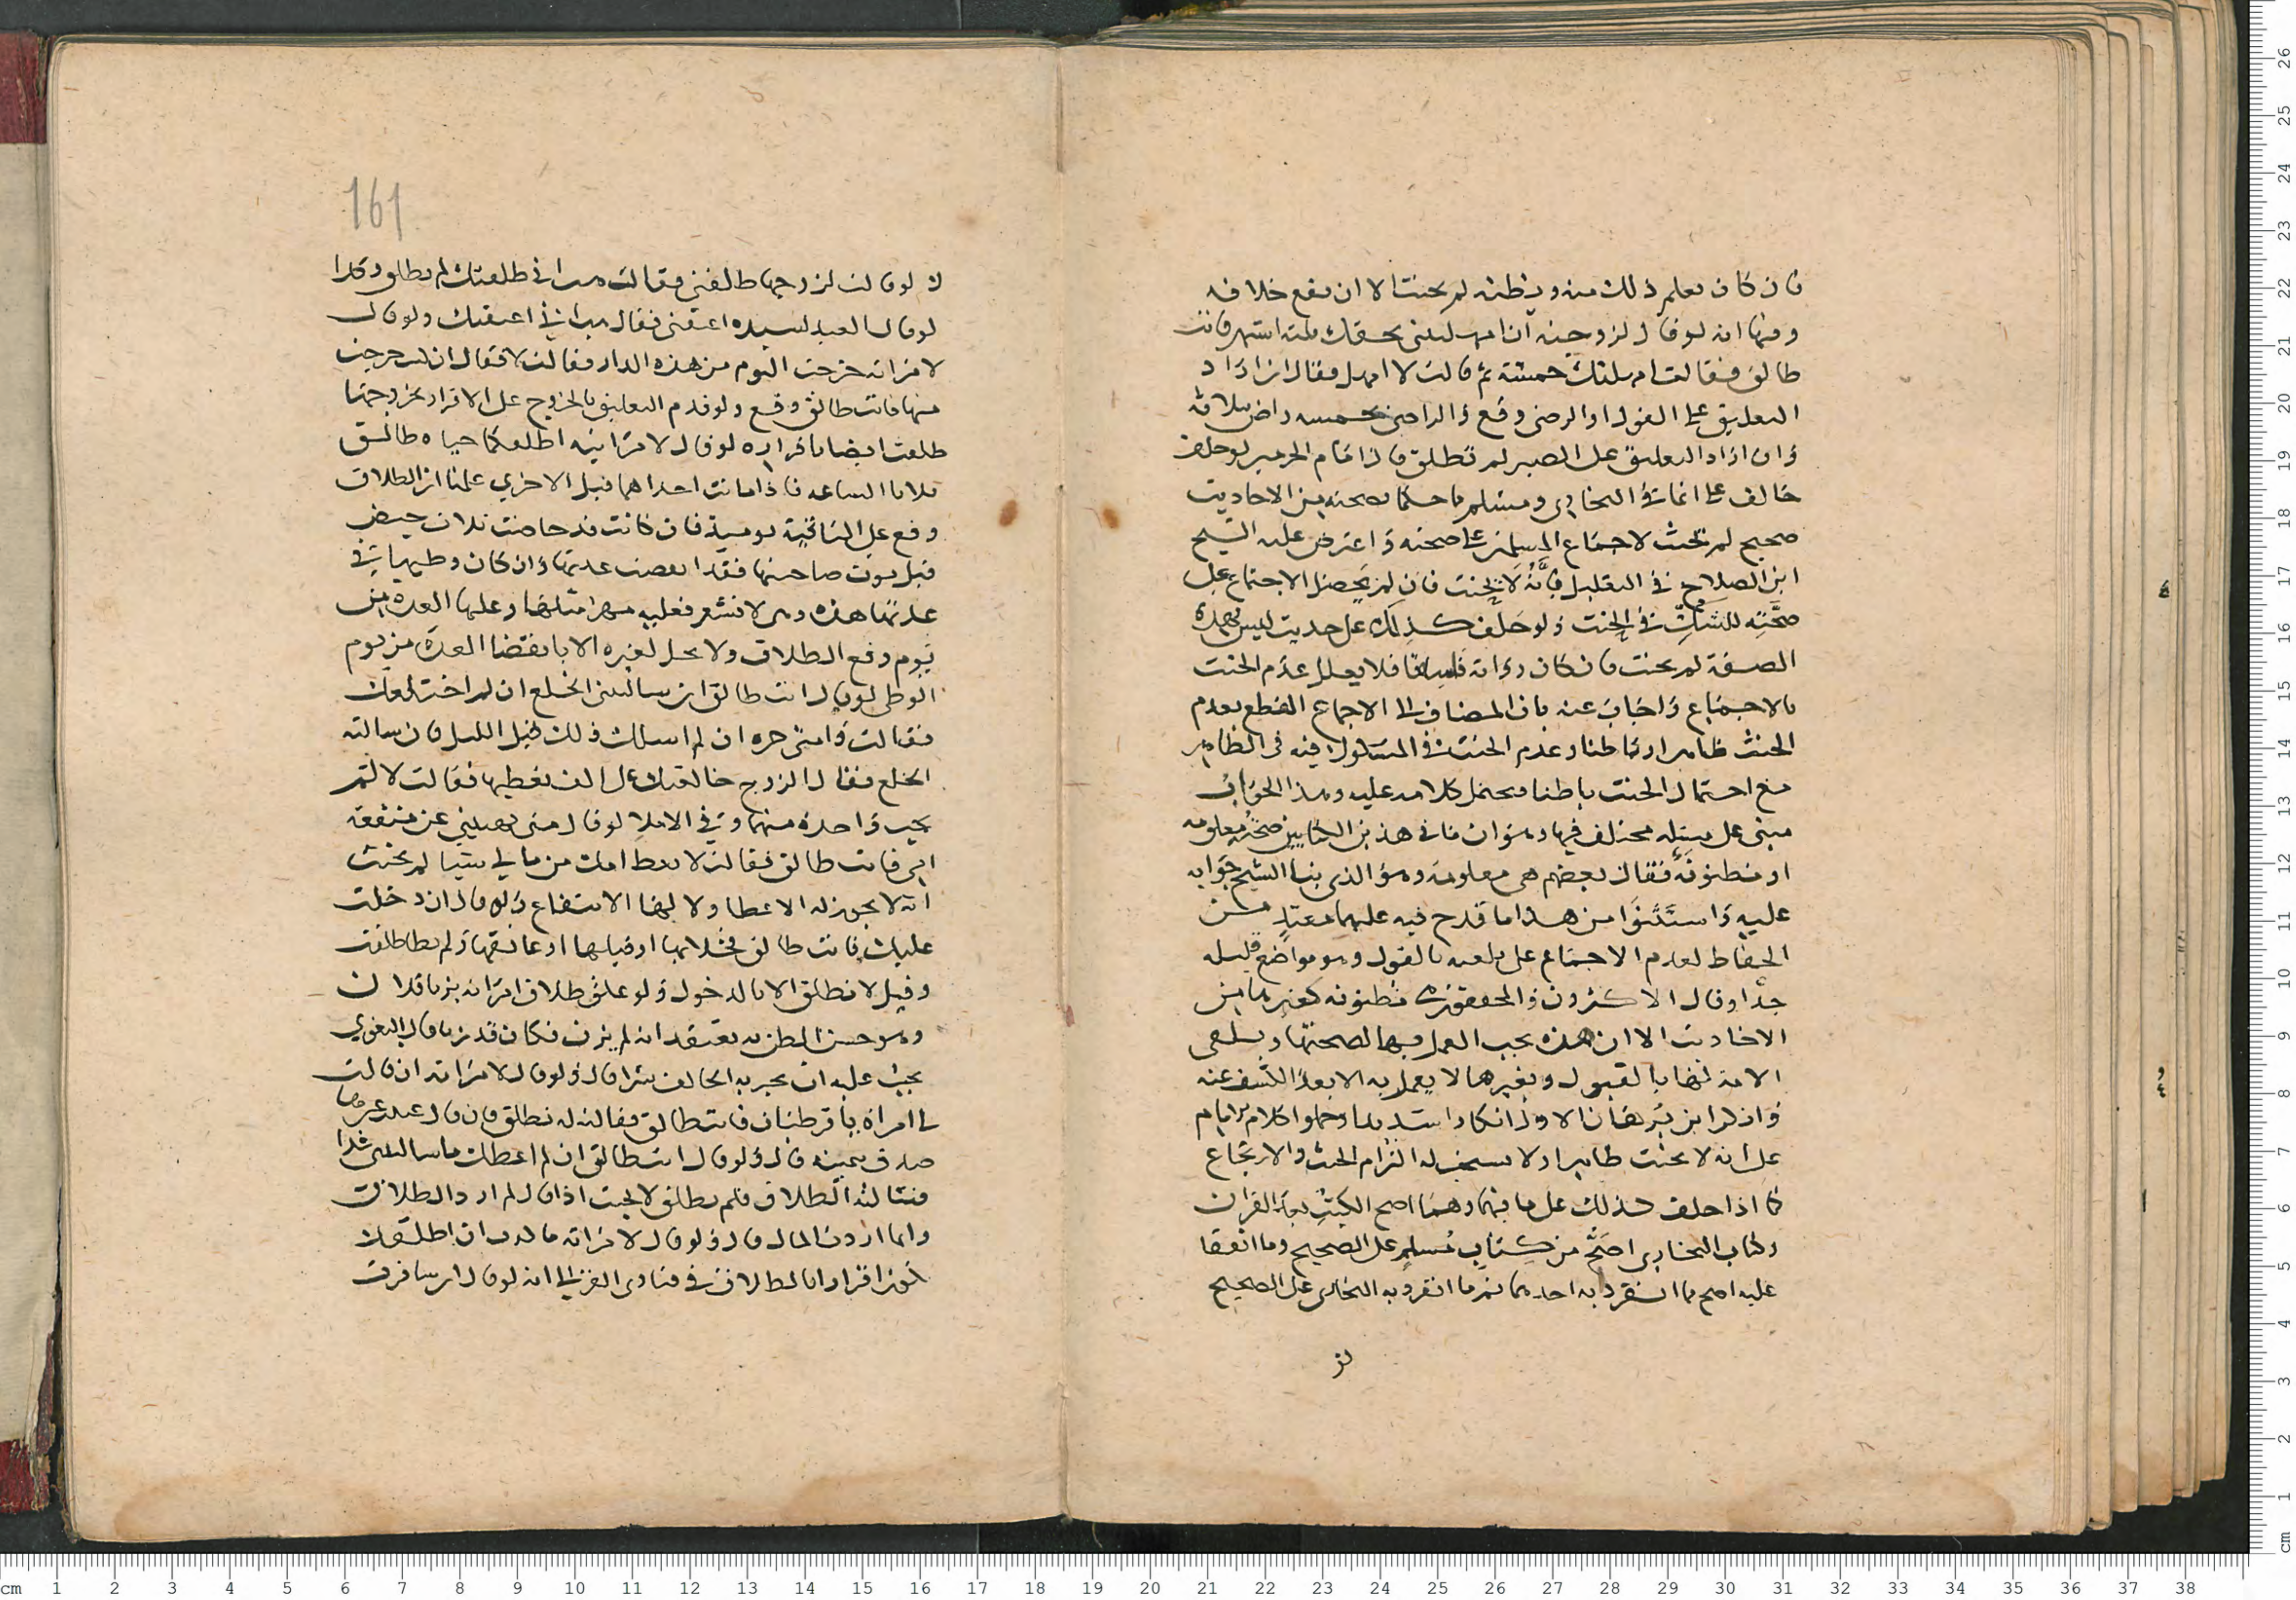 فان كان يعلم ذلك منه ويظنه لم يحنث الا ان يقع خلافه
ومنها انه لو قال لزوجته ان امهلتيني بحقك ستة اشهر فانت
طالق فقالت امهلتك خمسة ثم قالت لا امهل فقال ان اراد
التعليق على القول او الرضى وقع
وان اراد التعليق على الصبر لم تطلق فاذا امام الحرمين لو حلف
حالف على ان ما في البخاري ومسلم مما حكما بصحته من الاحاديث
صحيح لم يحنث لاجماع المسلمين على صحته واعترض عليه الشيخ
ابن الصلاح في التعليل فانه لا يحنث فان لم يحصل الاجتماع على
صحته للشك في الحنث ولو حلف كذلك على حديث ليس بهذه
الصفة لم يحنث فان كان رواته فاسقا فلا يعلل عدم الحنث
بالاجماع واجاب عنه بان المضاف الى الاجماع القطع بعدم
الحنث ظاهرا وباطنا وعدم الحنث في المشكوك فيه في الظاهر
مع احتمال الحنث باطنا فيحتمل كلامه عليه وهذا الجواب
مبنى على مسئلة مختلف فيها وهو ان ما في هذين الكتابين صحته معلومه
او مظنونة فقال بعضهم هي معلومة وهو الذي بنا الشيخ جوابه
عليه واستثنوا من هذا ما قدح فيه عليهما معتمد من
الحفاظ لعدم الاجماع على تلقيه بالقول وهو مواضع قليله
جدا وقال الاكثرون والمحققون مظنونه كغيرها من
الاحاديث الا ان هذه يجب العمل بها لصحتها وتلقي
الامة لها بالقبول وغيرها لا يعمل به الا بعد الكشف عنه
وانكر ابن برهان الاول انكارا شديدا وحملوا كلام الامام
على انه لا يحنث ظاهرا ولا يستحب له التزام الحنث والارتجاع
كما اذا حلف كذلك على ما فيهما وهما اصح الكتب بعد القران
وكتاب البخاري اصح من كتاب مسلم على الصحيح وما اتفقا
عليه اصح مما انفرد به احدهما ثم ما انفرد به البخاري على الصحيح
لو
161
لا لو قالت لزوجها طالقني فقالت طلقتك لم تطلق وكذا
لو قال العبد لسيده اعتقني فقال اعتقتك ولو قال
لامراته خرجت اليوم من هذه الدار فقالت لا فقال ان كنت خرجت
منها فانت طالق وقع ولو قدم التعليق بالخروج على الاقرار بخروجها
طلقت ايضا باقراره لو قال لامراتيه اطولكما حياة طالق
ثلاثا الساعة فاذا ماتت احداهما قبل الاخرى علمنا ان الطلاق
وقع على الباقية يومئذ فان كانت قد حاضت ثلاث حيض
قبل موت صاحبتها فقد انقضت عدتها وان كان وطيها في
عدتها هذه وهي لا تشعر فعليه مهر مثلها وعليها العدة من
يوم وقع الطلاق ولا تحل لغيره الا بانقضا العدة من يوم
الوطي لو قال انت طالق ان سالتيني الخلع ان لم اخالعك
فقالت وامتي حرة ان لم اسالك ذلك قبل الليل فان سالته
الخلع فقال الزوج خالعتك على الف تعطيها فقالت لا لم
يجب واحدة منهما وفي الاملا لو قال متى منعتيني عن منفعة
ابي فانت طالق فقالت لا تعط امك من مالي شيا لم يحنث
انه لا يجوز له الاعطا ولا لها الانتفاع ولو قال ان دخلت
عليك فانت طالق فخلا بها او قبلها او عانقها ولم يطا طلقت
وقيل لا تطلق الا بالدخول ولو علق طلاق امراته بزنا فلان
وهو حسن الظن به يعتقد انه لم يزن فكان قد زنا قال البغوي
يجب عليه ان يخبر به الحالف سرا قال ولو قال لامراته ان قالت
لي امراة يا قرطبان فانت طالق فقالته له تطلق فان قال
صدق بيمينه قال ولو قال انت طالق ان لم اعطك ما سالتيني غدا
فسالته الطلاق فلم يطلق لا يحنث اذا قال لم ارد الطلاق
وانما اردت المال قال ولو قال لامراته ما اردت ان اطلقك
لم يكن اقرارا بالطلاق في فتاوى الغزالي انه لو قال ان سافرت